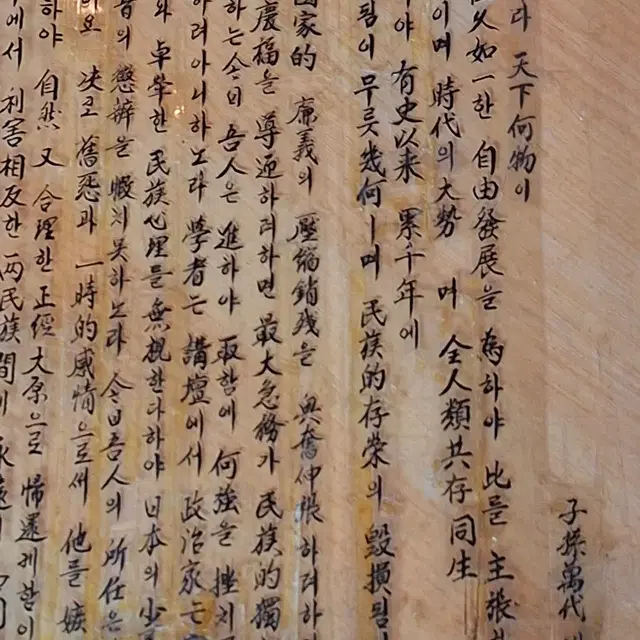 子孫萬代
라 天下何物이
久如一한 自由發展을 為하야 此를 主張하
이며 時代의 大势 며 全人類共存同生
야 有史以来 累千年에
됨이 무릇 幾何ㅣ며 民族的存榮의 毀損됨
國家的 廉義의 壓縮銷殘을 興奮伸張하려하
慶福을 導迎하려하면 最大急務가 民族的獨
하는 今日 吾人은 進하야 取함에 何強을 挫치
하려아니하노라 學者는 講壇에서 政治家는
와 卓犖한 民族心理를 無視한다하야 日本의 少
昔의 懲辨을 暇치못하노라 今日吾人의 所任은
決코 舊怨과 一時的感情으로써 他를 嫉
하야 自然 又 合理한 正經大原으로 歸還케함이
에서 利害相反한 両民族間에 永遠히